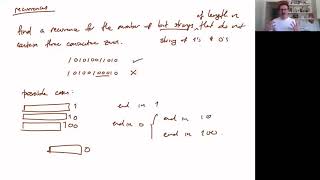 recurrences
of length n
find a recurrence for the number of bit strings that do not
contain three consecutive zeros.
string of 1's & 0's
101010011010 ✓
1010100010 ✗
possible cases:
1
10
100
end in 1
end in 0 { end in 10
end in 100.
0